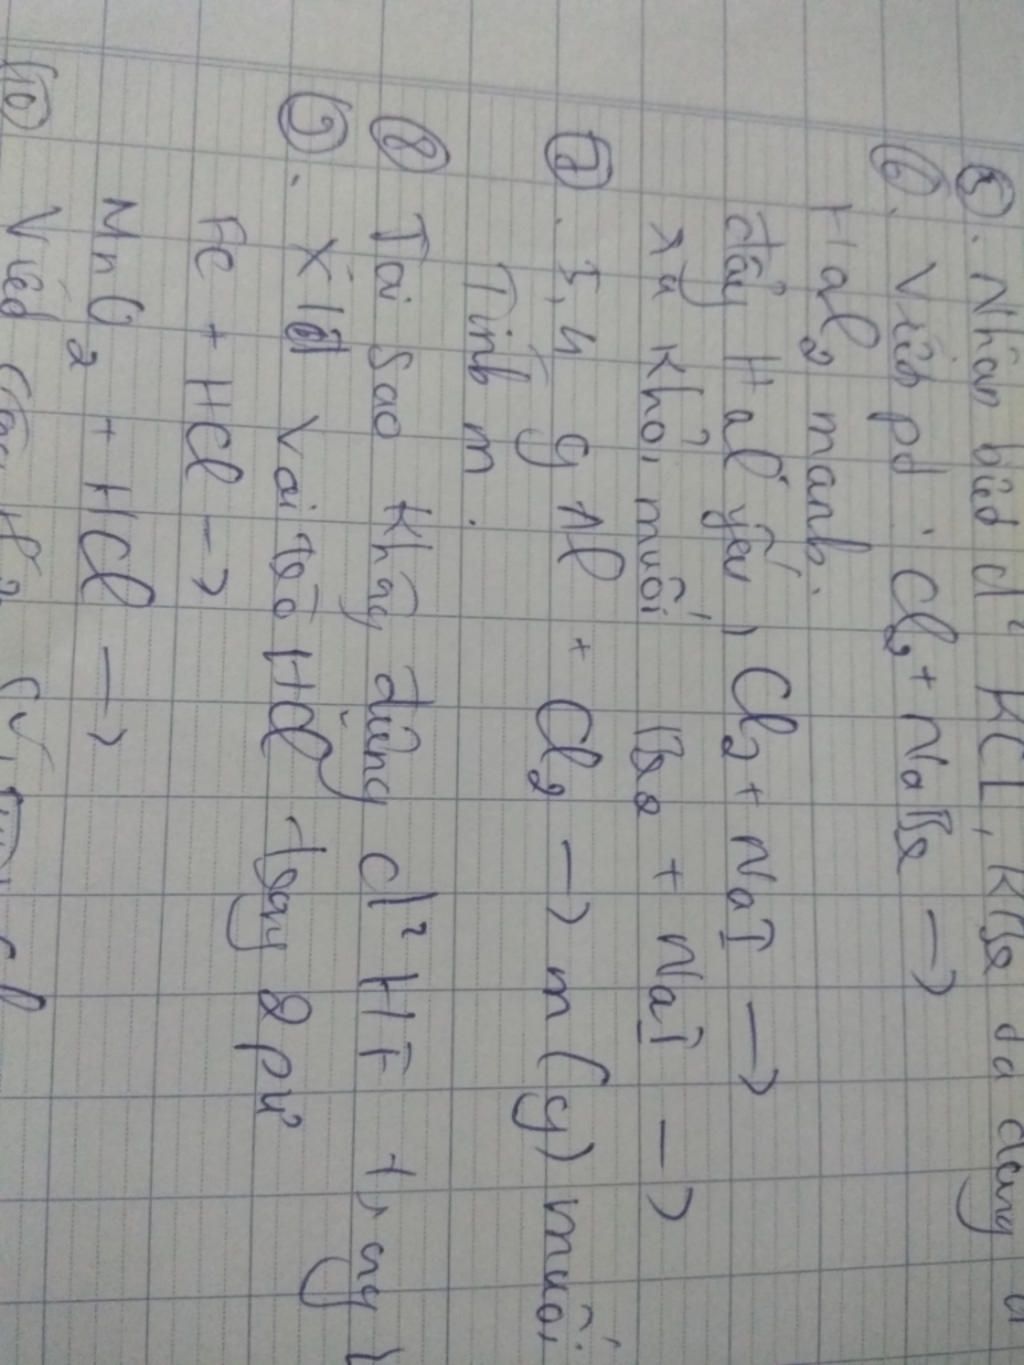 ⑤. Nhận biết d² KCl, KBr da dang
⑥. Viết pt : Cl₂ + NaBr →
Hal₂ mạnh.
đẩy Hal yếu, Cl₂ + NaI →
ra khỏi muối Br₂ + NaI →
⑦. 5,4 g Al + Cl₂ → m (g) muối
Tính m.
⑧ Tại Sao Không đựng d² HF
⑨. Vai trò HCl 2 pư
Fe + HCl →
MnO₂ + HCl →
⑩ Viết